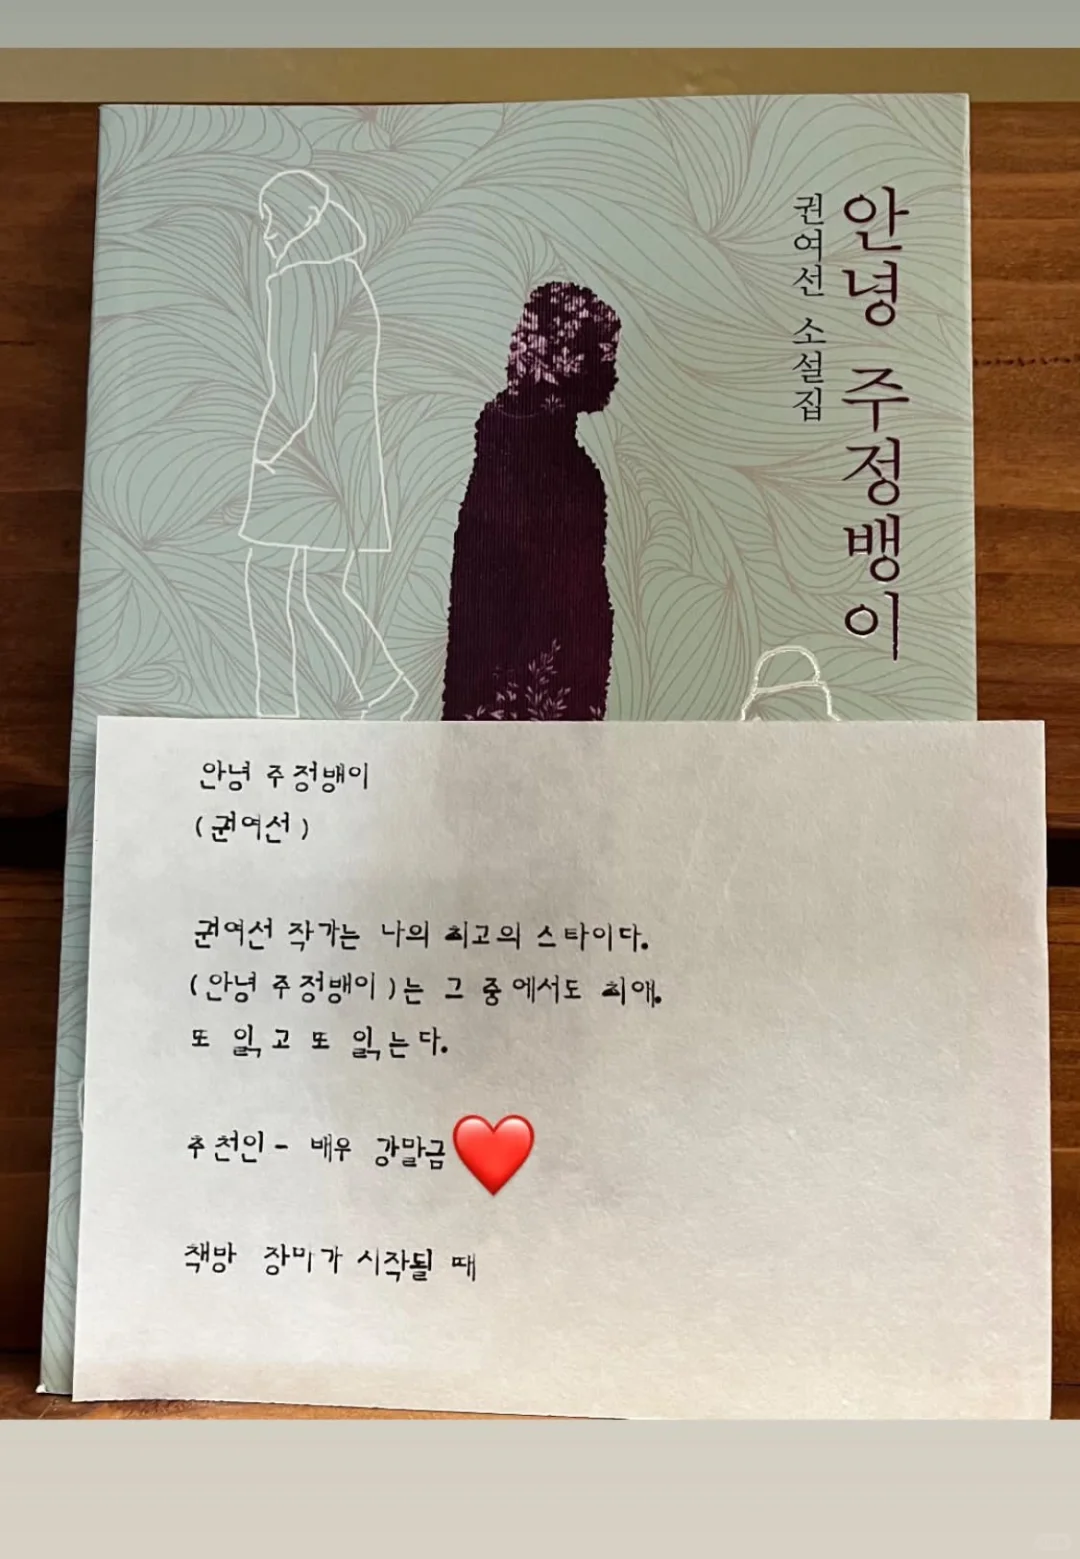 안녕 주정뱅이
권여선 소설집
안녕 주정뱅이
(권여선)
권여선 작가는 나의 최고의 스타이다.
(안녕 주정뱅이)는 그 중에서도 최애.
또 읽고 또 읽는다.
추천인 - 배우 강말금❤️
책방 장미가 시작될 때